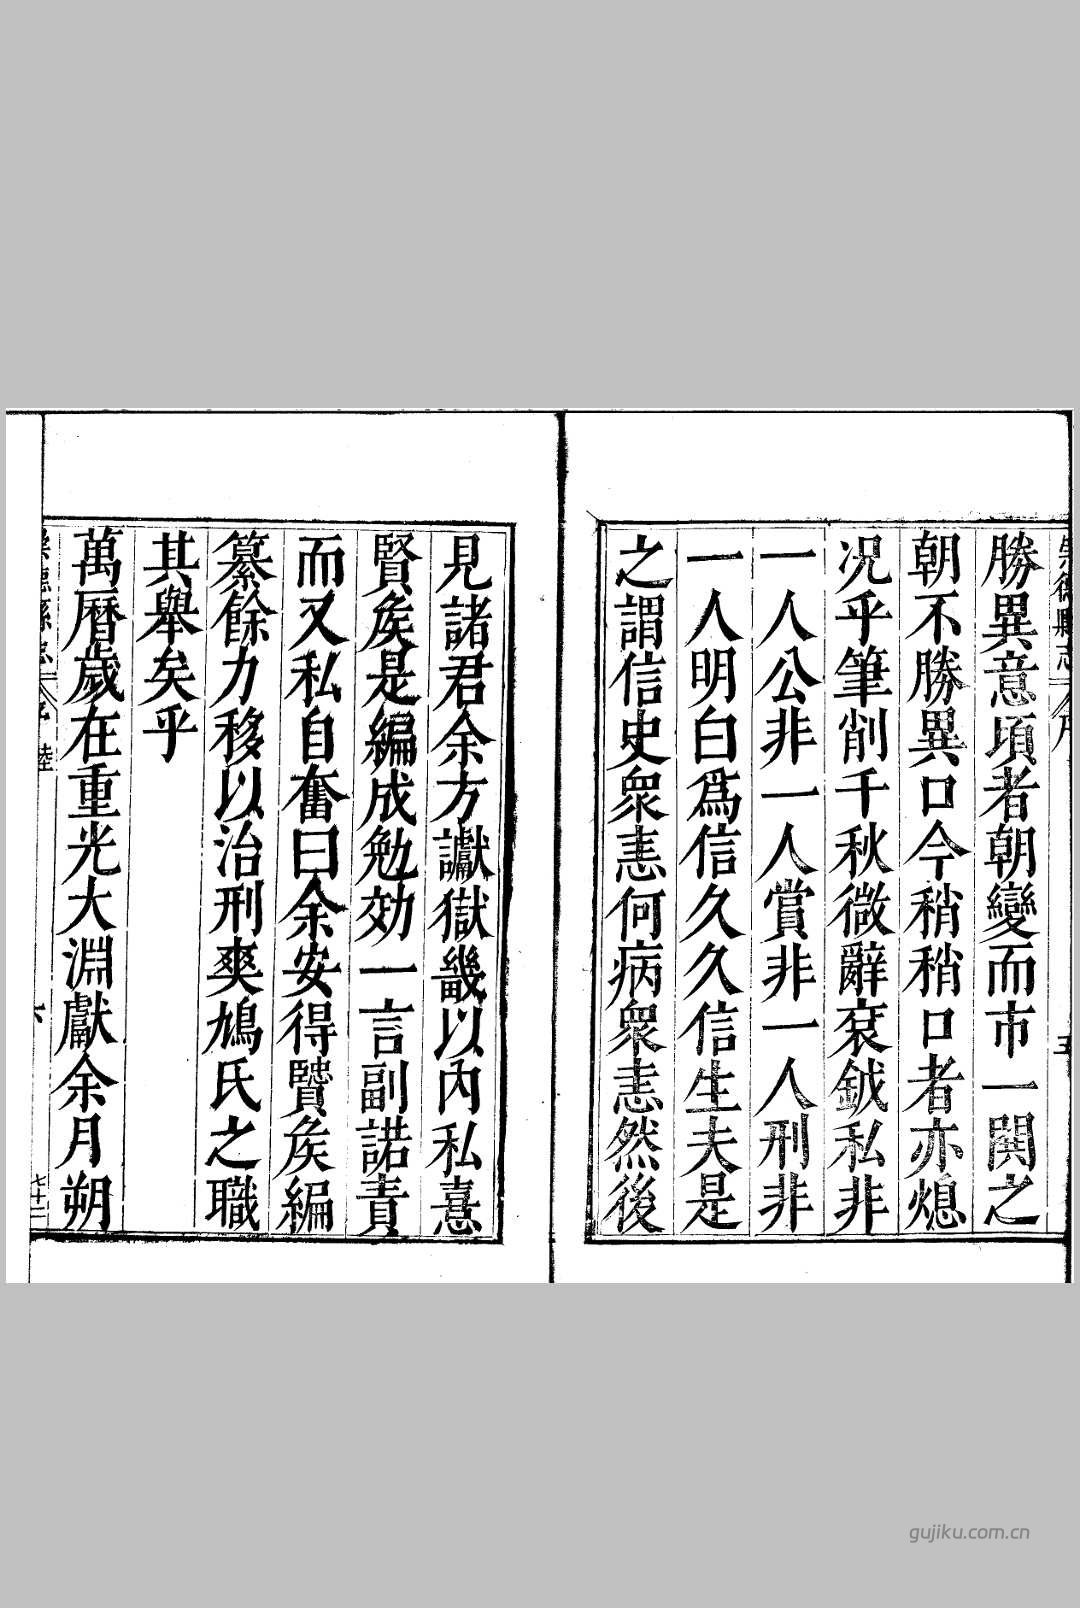 崇德縣志
序
五
勝異意頃者朝變而市一閧之
朝不勝異口今稍稍口者亦熄
况乎筆削千秋微辭袞鉞私非
一人公非一人賞非一人刑非
一人明白爲信久久信生夫是
之謂信史衆恚何病衆恚然後
見諸君余方讞獄畿以內私憙
賢矦是編成勉効一言副諾責
而又私自奮曰余安得賢矦編
纂餘力移以治刑爽鳩氏之職
其舉矣乎
萬曆歲在重光大淵獻余月朔
崇德縣志
六
gujiku.com.cn